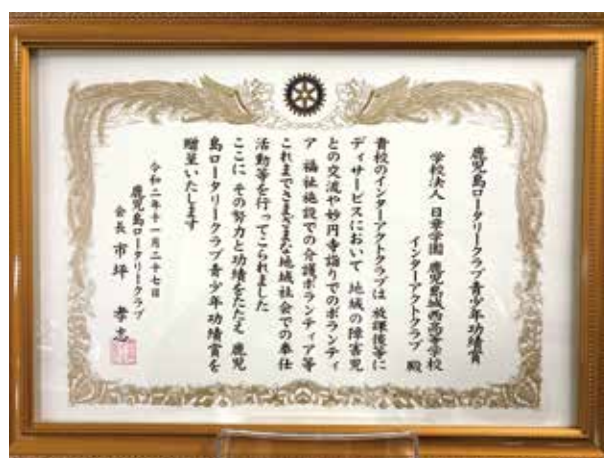 鹿児島ロータリークラブ青少年功績賞
学校法人 日章学園 鹿児島城西高等学校
インターアクトクラブ 殿
貴校のインターアクトクラブは 放課後等に
ディサービスにおいて 地域の障害児
との交流や妙円寺詣りでのボランティ
ア 福祉施設での介護ボランティア等
これまでさまざまな地域社会での奉仕
活動等を行ってこられました
ここに その努力と功績をたたえ 鹿児
島ロータリークラブ青少年功績賞を
贈呈いたします
令和二年十一月二十七日
鹿児島ロータリークラブ
会長 市坪 孝志